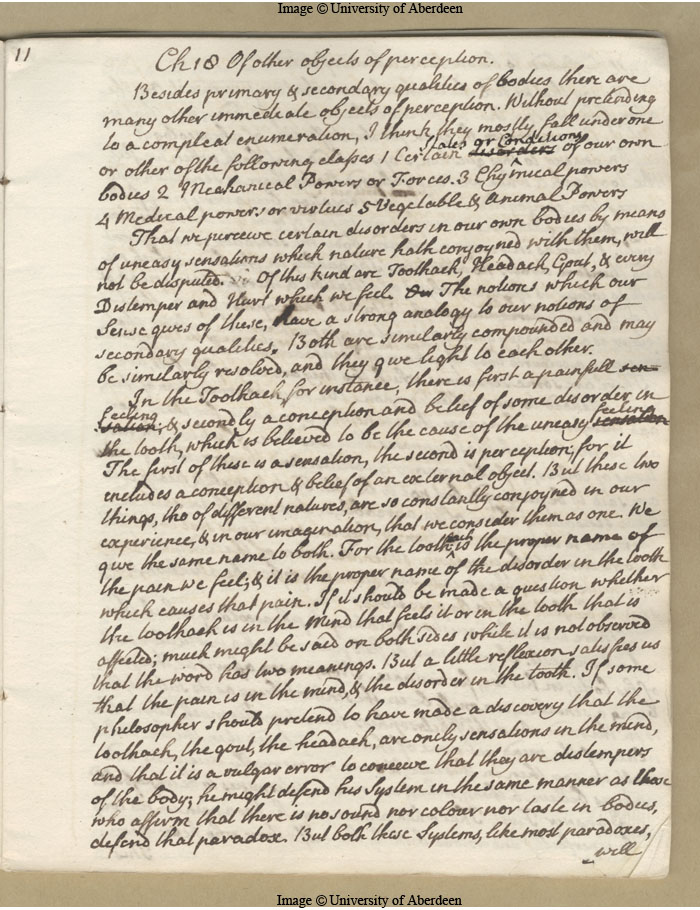 Image © University of Aberdeen
11
Ch 18 Of other objects of perception.
Besides primary & secondary qualities of bodies there are
many other immediate objects of perception. Without pretending
to a compleat enumeration, I think they mostly fall under one
States or Conditions
or other of the following classes 1 Certain disorders of our own
bodies 2 Mechanical Powers or Forces. 3 Chymical powers
4 Medical powers or virtues 5 Vegetable & Animal Powers
That we perceive certain disorders in our own bodies by means
of uneasy sensations which nature hath conjoyned with them, will
not be disputed. Of this kind are Toothach, Headach, Gout, & every
Distemper and Hurt which we feel. Our The notions which our
Sense gives of these, have a strong analogy to our notions of
secondary qualities. Both are similarly compounded and may
be similarly resolved, and they give light to each other.
In the Toothach, for instance, there is first a painfull sen-
feeling feeling
sation; & secondly a conception and belief of some disorder in
the tooth, which is believed to be the cause of the uneasy sensation
The first of these is a sensation, the second is perception, for it
includes a conception & belief of an external object. But these two
things, tho of different natures, are so constantly conjoyned in our
experience, & in our imagination, that we consider them as one. We
give the same name to both. For the toothach is the proper name of
the pain we feel; & it is the proper name of the disorder in the tooth
which causes that pain. If it should be made a question whether
the toothach is in the mind that feels it or in the tooth that is
affected; much might be said on both sides while it is not observed
that the word has two meanings. But a little reflexion satisfies us
that the pain is in the mind, & the disorder in the tooth. If some
philosopher should pretend to have made a discovery that the
toothach, the gout, the headach, are only sensations in the mind,
and that it is a vulgar error to conceive that they are distempers
of the body; he might defend his System in the same manner as those
who affirm that there is no sound nor colour nor taste in bodies,
defend that paradox. But both these Systems, like most paradoxes,
will
Image © University of Aberdeen